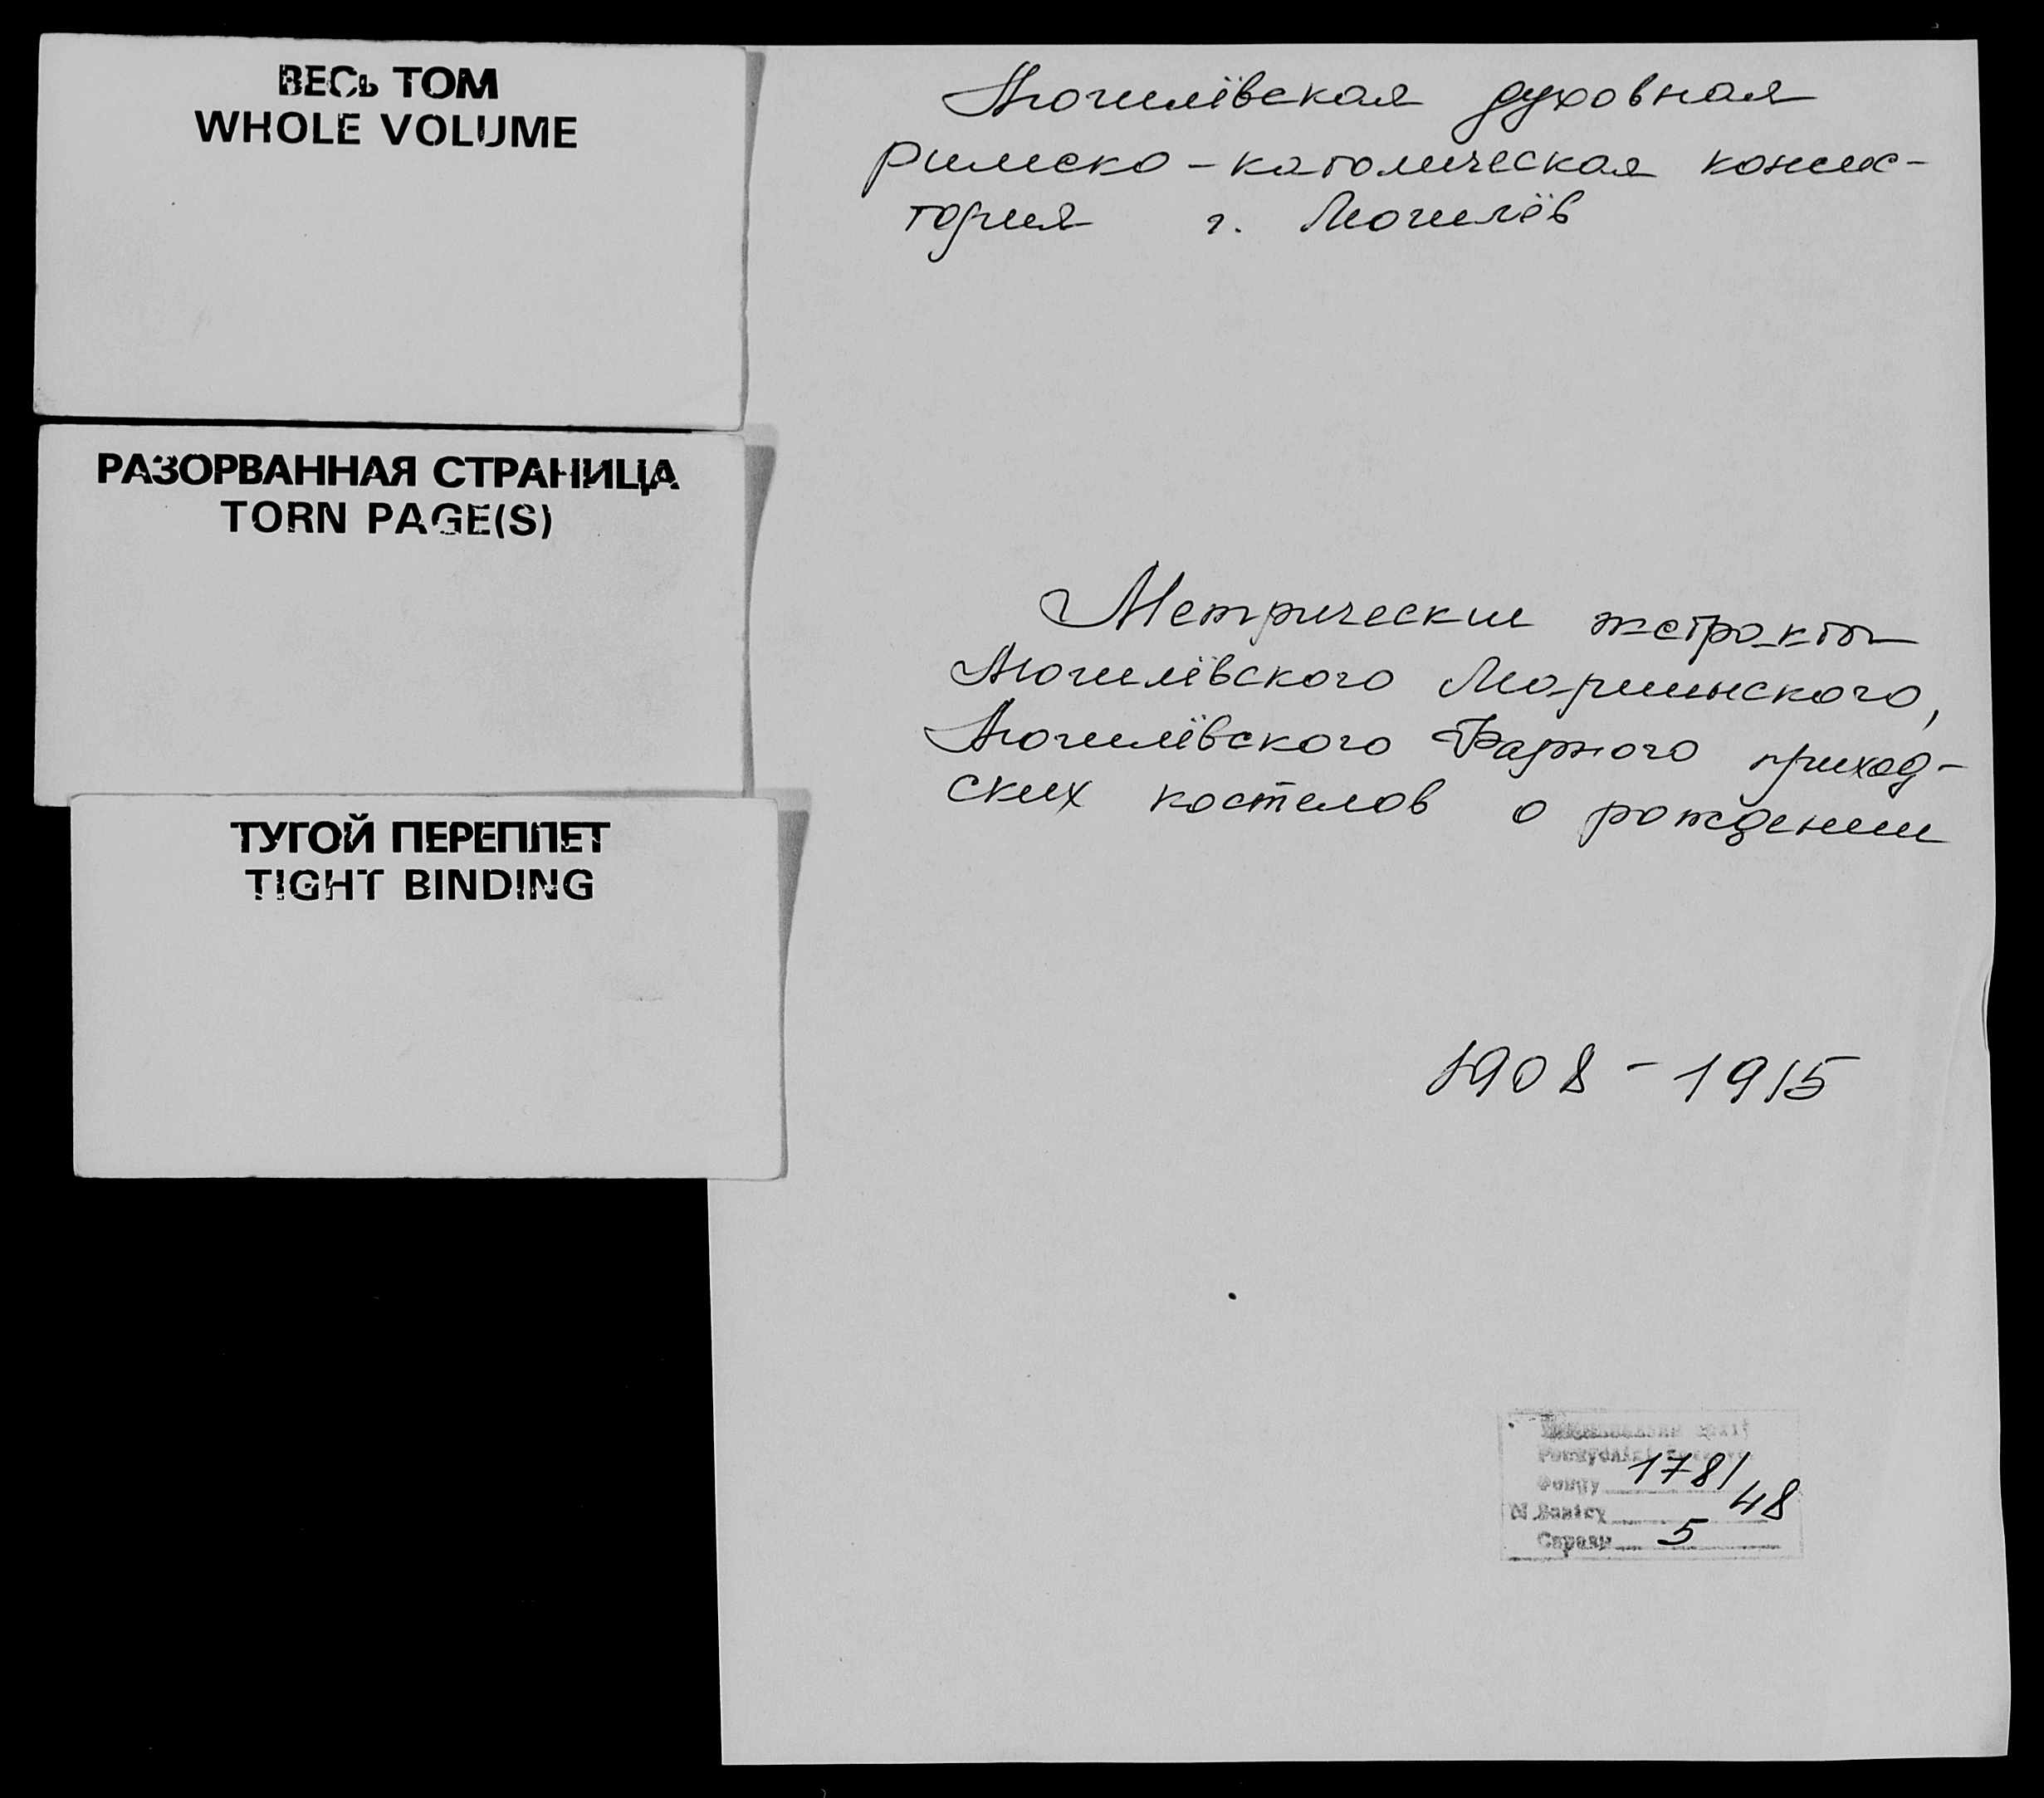 ВЕСЬ ТОМ
WHOLE VOLUME
РАЗОРВАННАЯ СТРАНИЦА
TORN PAGE(S)
ТУГОЙ ПЕРЕПЛЕТ
TIGHT BINDING
Могилёвская духовная
римско-католическая консис-
тория г. Могилёв
Метрические экстракты
Могилёвского Мариинского,
Могилёвского Фарного приход-
ских костелов о рождении
1908 - 1915
Фонду 1781/
Вопісу 48
Справы 5